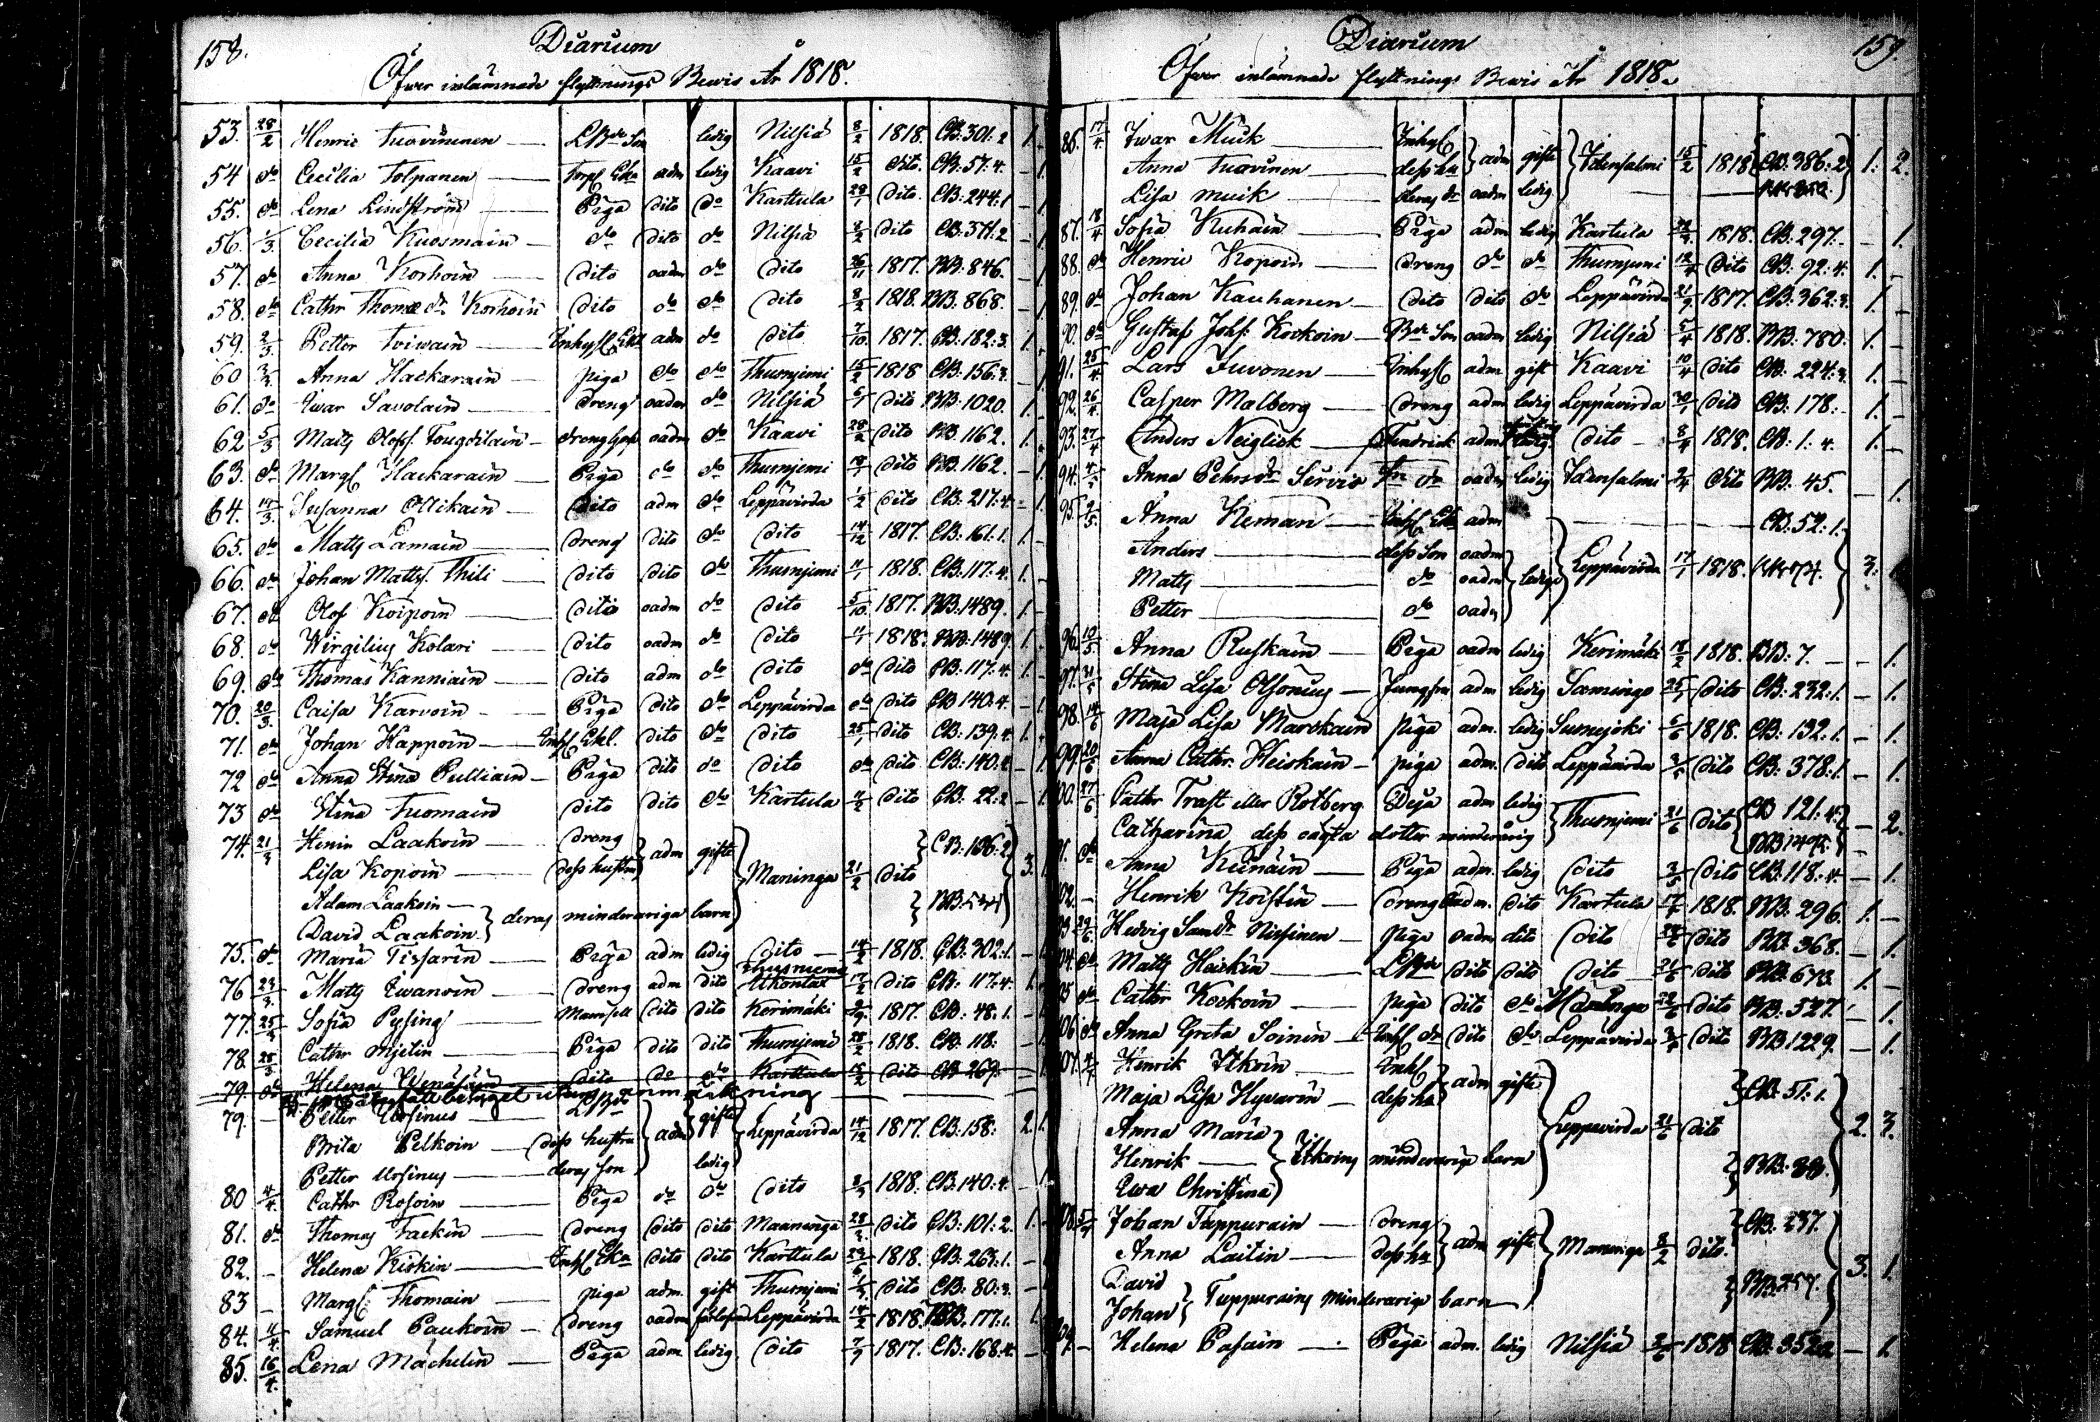 158.
Diarium
Öfwer inlämnade flyttnings Bewis År 1818.
53. 28/2 Henric Tuovinenen — LBde Son ledig Nilsiä 8/2 1818. CB. 301:2 1. -
54 do Cecilia Tolpanen — Torp. Enka adm ledig Kaavi 15/2 dito. CB: 57:4. - 1
55. do Lena Lindström — Piga dito do Karttula 28/1 dito. CB: 244:1 - 1
56. 1/3 Cecilia Kuosmain — do dito do Nilsiä 8/2 dito CB. 371:2 - 1
57. do Anna Korhoin — dito oadm do dito 26/11 1817. BB: 846. - 1
58. do Cathr Thomæ dr Korhoin dito do do dito 8/2 1818. BB. 868. - 1
59. 2/3 Petter Toiwain — Inhys Enkl adm do dito 7/10 1817. CB: 182:3. 1.
60 3/3 Anna Hackarain — piga do do Thusnjemi 15/2 1818 CB: 156:3. - 1
61. do Iwar Savolain — dreng oadm do Nilsiä dito BB: 1020. 1. -
62 5/3 Matts Olofs. Tougdilain — drenggoss oadm do Kaavi 28/2 dito BB 1162. 1. -
63. do Margt Hackarain — Piga do do Thusnjemi dito BB: 1162. - 1.
64. 14/3. Susanna Ollikain — dito adm do Leppävirda 1/2 dito CB: 217:4. - 1.
65. do Matts Lamain — dreng dito do dito 14/12 1817. CB: 161:1. 1. -
66. do Johan Matts. Thili — dito dito do Thusnjemi 1818. CB: 117:4. 1. -
67. do Olof Koipoin — dito oadm do dito 5/10. 1817. BB: 1489. 1. -
68. do Wirgilius Kolari — dito oadm do dito 1818. BB: 1489 1.
69. do Thomas Kanniain — dito adm do dito do dito CB: 117:4. 1. -
70. 20/3. Caisa Karvoin — Piga dito do Leppävirda do dito CB 140:4. - 1
71. do Johan Happoin — Inhs Enkl. dito do dito 25/1 dito CB: 139:4 1. -
72 do Anna Stina Pulliain — Piga dito do dito do dito CB: 140:4. - 1.
73 do Stina Tuomain dito dito do Kartula dito CB: 22:2 - 1.
74. 21/3 Henric Laakoin — dreng } adm gifte CB: 136:2
Lisa Kopoin — dess hustru Maninga 21/2 dito 3. 1
Adam Laakoin —
David Laakoin } deras minderåriga barn BB: 534
75. do Maria Tissarin — Piga adm ledig dito — 14/2 1818. CB: 302:1. - 1
Thusniemi
76 23/3. Matts Iwanoin — dreng adm dito Utkontar 17/2 dito CB: 117:4. 1. -
77. 25/3 Sofia Pysing — Mamsell dito dito Kerimäki 1817. CB: 48:1. - 1
78. 28/3 Cathr Mjelin — Piga dito dito Thusnjemi 28/2 1818. CB: 118. - 1
79. do Helena Wenäläin dito do do Karttula 15/2 dito CB 269.
79. — Petter Ursinus — LBde } adm gifte } Leppävirda 14/12 1817. CB: 158: 2. 1.
Brita Pelkoin — dess hustru
Petter Ursinus — deras son ledig
80 4/4. Cathr Rosoin — Piga do do dito 1818. CB: 140:4. - 1.
81. do Thomas Tackin — dreng dito dito Maaninga 28/3 dito CB: 101:2. 1. -
82. - Helena Kiskin — Inhs Enka dito dito Karttula 1818. CB: 263:1. - 1
83 - Margt: Thomain — piga adm. gift Thusnjemi dito CB: 80:3. - 1
84. 11/4. Samuel Paukoin — dreng oadm förlofwad Leppävirda 14/2 1818. BB. 177:1. 1.
85. 16/4. Lena Machelin — Piga adm ledig. dito 1817. CB: 168:4. - 1
159.
Diarium
Öfwer inlämnade flyttnings Bewis År 1818.
86. 17/4 Iwar Muik — Inhys } adm gifte } Idensalmi 15/2 1818 CB. 386:2 1. 2.
Anna Tuovinen — dess hu
Lisa muik — deras dr oadm ledig
87. 18/4 Sofia Kuhain — Piga adm ledig Kartula 1818. CB. 297. - 1.
88. do Henric Kopoin — dreng do do Thusnjemi 12/4 dito CB. 92:4. 1. -
89. do Johan Kauhanen — dito dito do Leppävirda 1817. CB. 362:3. 1. -
90. do Gustaf Johs: Kockoin — Bde Son oadm ledig Nilsiä 5/4 1818. BB: 780. 1. -
91. 25/4 Lars Juvonen — Inhys adm gift Kaavi 10/4 dito CB: 224:3. 1. -
92. 26/4. Casper Malberg — dreng adm ledig Leppävirda 30/1 dito CB: 178. 1. -
93. 27/4 Anders Neiglick — Fendrick adm dito 8/4 1818. CB: 1:4. 1. -
94. Anna Pehrsdr Servio — do oadm ledig Idensalmi 2/4 dito BB. 45. - 1.
95. Anna Kieman — Inhs Enka adm CB: 52:1.
Anders — dess Son oadm } ledige } Leppävirda 17/1 1818. 3. 1
Matts — do oadm
Petter — do oadm
96. 10/5 Anna Ruskain — Piga oadm ledig Kerimäki 18/2 1818. BB: 7. - 1.
97. 31/5 Stina Lisa Olsonius — Jungfru adm ledig Sæminge dito CB: 232:1. - 1.
98. 14/6 Maja Lisa Marskain piga adm. ledig Sumejoki 1818. CB: 132:1. - 1.
99. 20/6 Anna Cathr: Heiskain — piga adm. dito Leppävirda dito CB: 378:1. - 1.
100. 27/6 Cathr Trast eller Rotberg Deja adm ledig } Thusnjemi 21/6 dito CB 121:4. - 2.
Catharina dess oägta dotter minderårig
do Anna Keinäin — Piga adm. ledig dito dito CB: 118:4. - 1.
102. - Henrik Koistin — dreng oadm. dito Kartula 1818. BB. 296. 1. -
103 29/6 Hedvig Sam Dr Nissinen — piga oadm dito dito dito BB: 368. - 1.
104. do Matts Heiskin — dito dito dito 21/6 dito BB: 673. 1. -
105 do Cathr Kockoin — piga dito do Maninga dito BB: 527. - 1.
106 do Anna Greta Soinin — Inhs dr dito do Leppävirda dito BB 1229. - 1.
107. Henrik Itkoin — Inhs } adm gifte CB: 51:1.
Maja Lisa Hyvarin — dess hu
Anna Maria } Leppävirda 21/6 dito 2. 3.
Henrik — } Itkoins minderåriga barn BB: 88.
Ewa Christina
108. Johan Tuppurain — dreng } adm gifte } Maninga 8/2 dito. CB: 237.
Anna Laitin — dess hu 3. 1.
David
Johan } Tuppurains minderåriga barn BB: 257.
109. - Helena Pasain — Piga adm. ledig Nilsiä 1818 CB: 352:2. - 1.